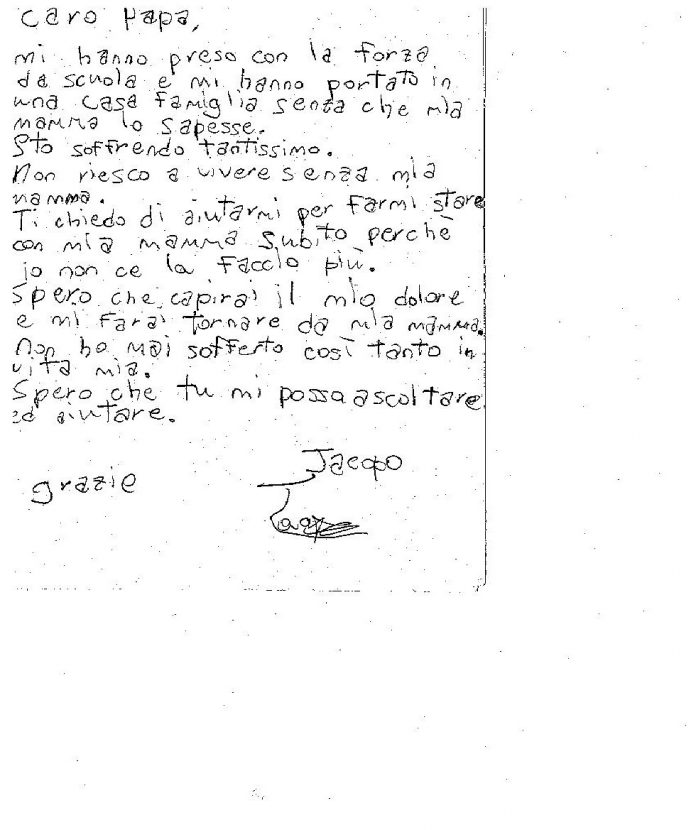 Caro Papa,
mi hanno preso con la forza
da scuola e mi hanno portato in
una casa famiglia senza che mia
mamma lo sapesse.
Sto soffrendo tantissimo.
Non riesco a vivere senza mia
mamma.
Ti chiedo di aiutarmi per farmi stare
con mia mamma subito perchè
io non ce la faccio più.
Spero che capirai il mio dolore
e mi farai tornare da mia mamma.
Non ho mai sofferto così tanto in
vita mia.
Spero che tu mi possa ascoltare
ed aiutare.
grazie
Jacopo